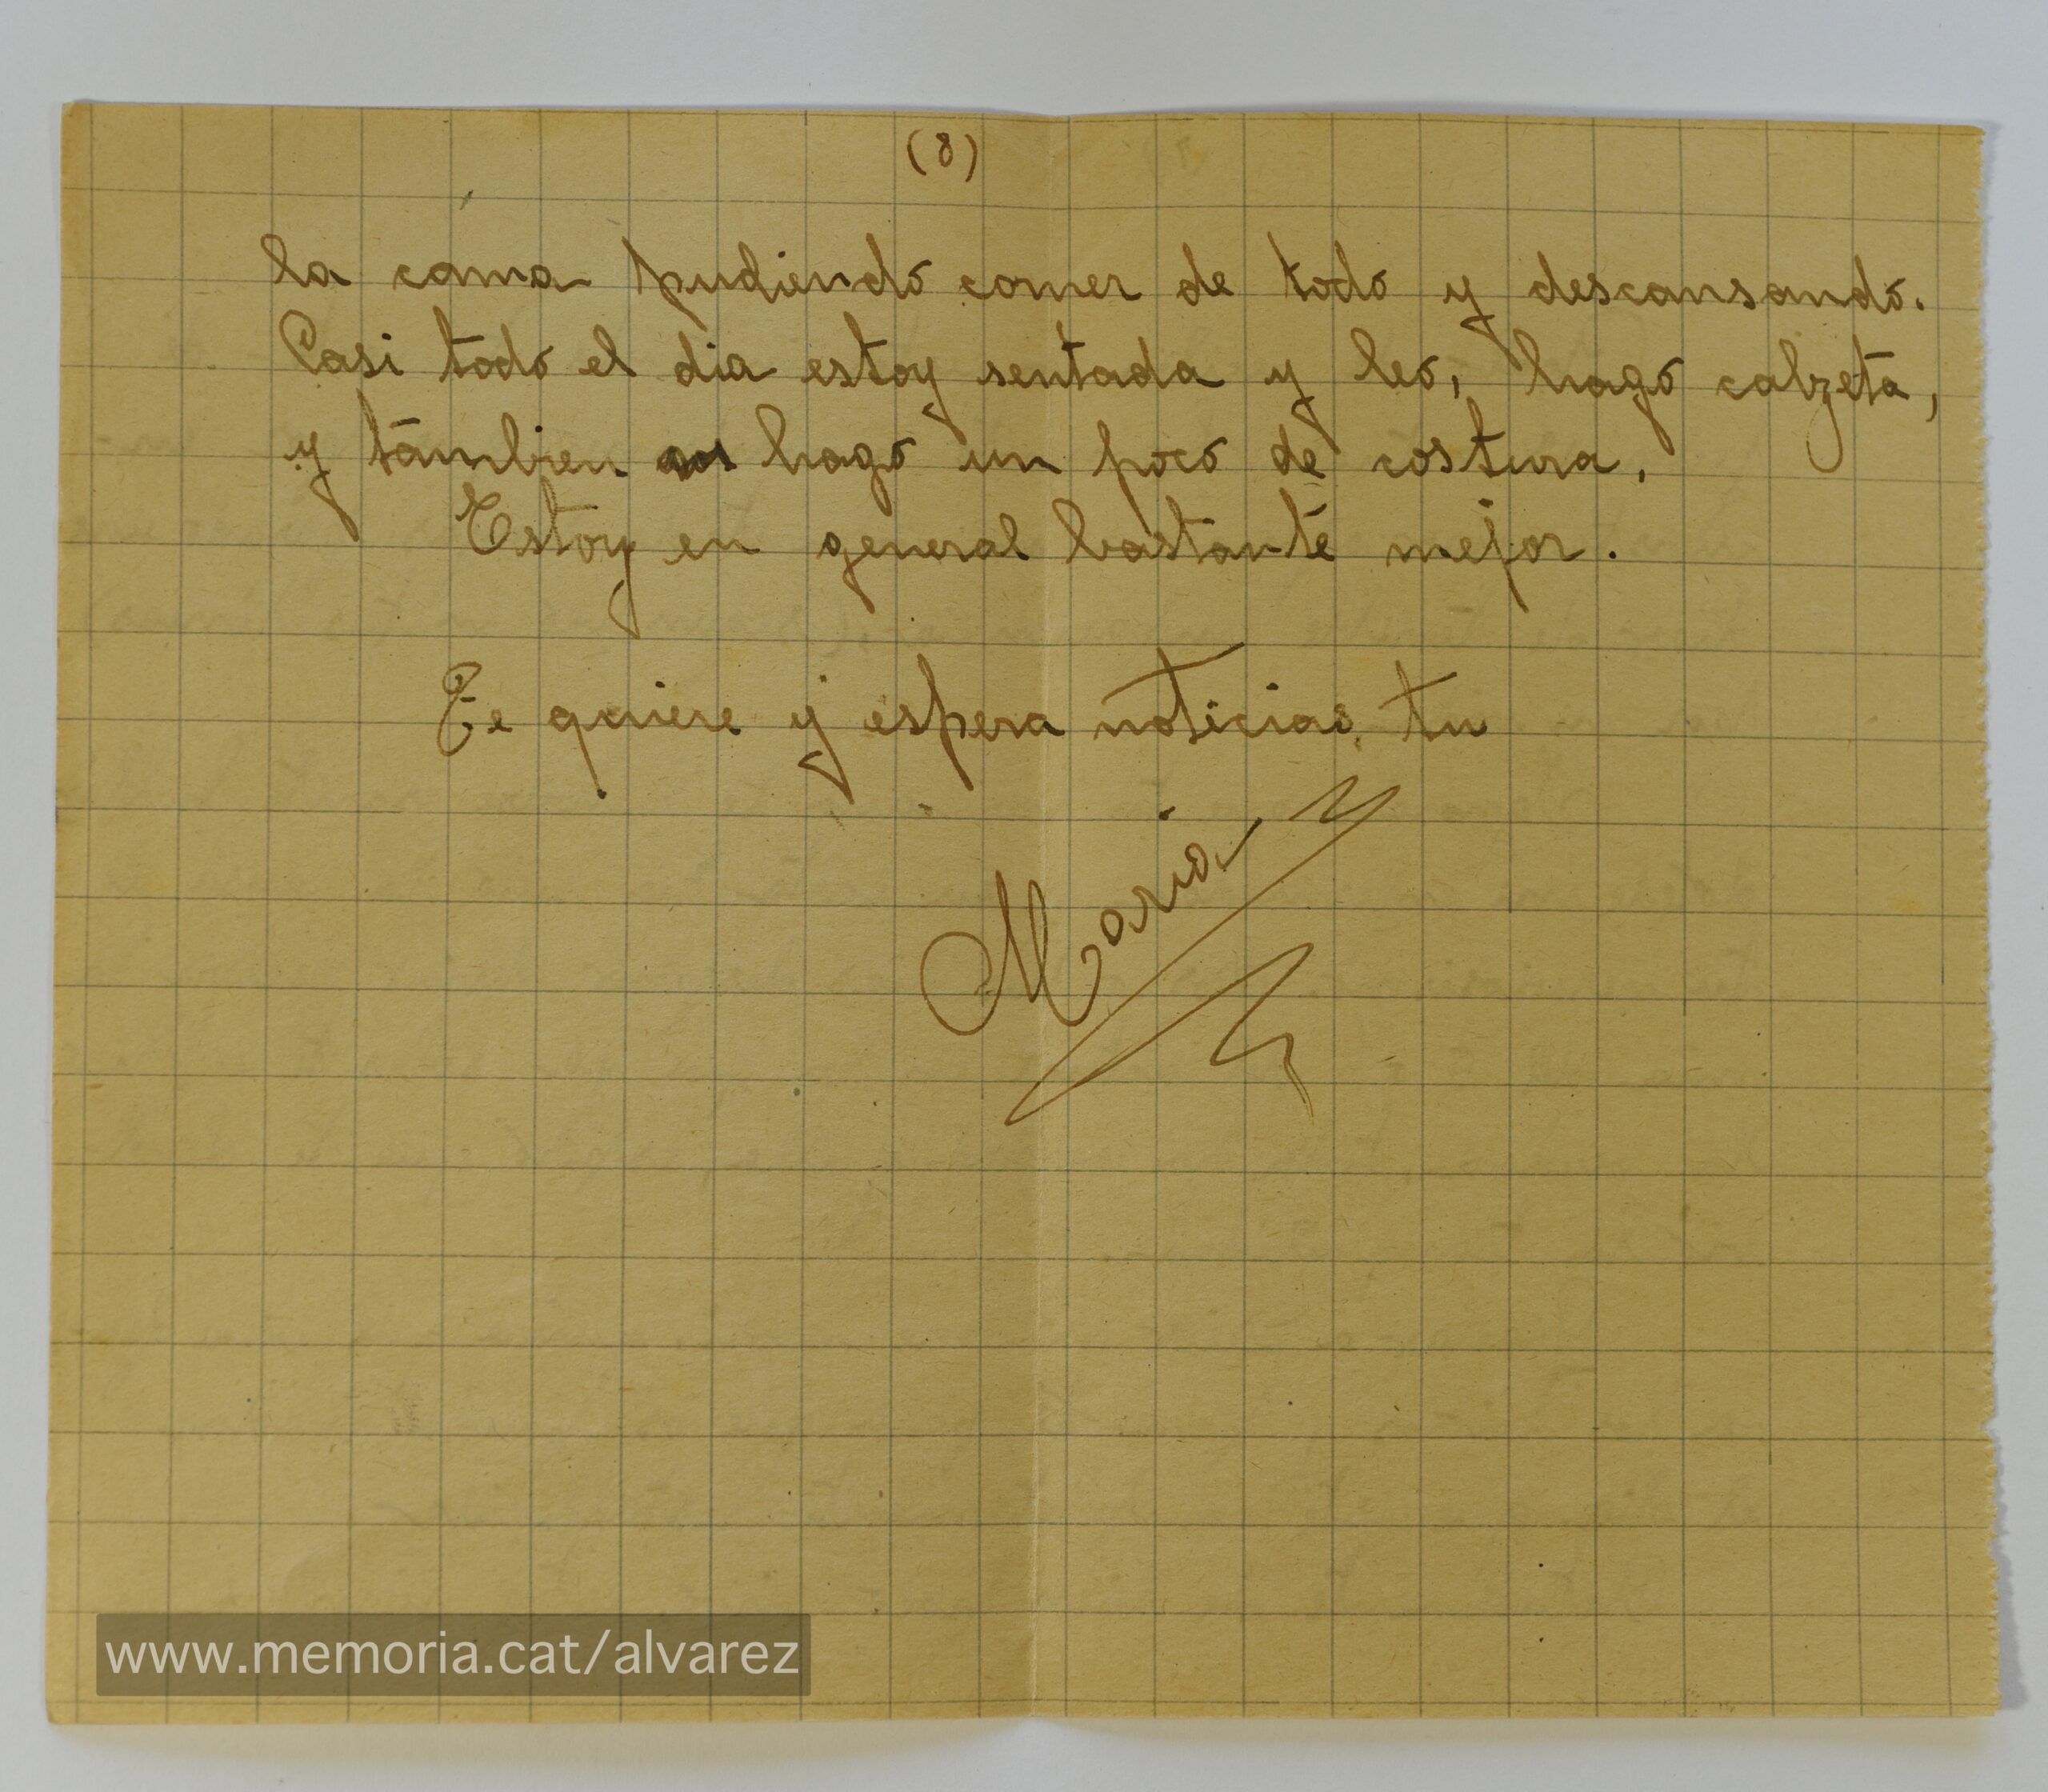 (8)
la cama pudiendo comer de todo y descansando.
Casi todo el dia estoy sentada y leo, hago calzeta,
y tambien hago un poco de costura.
Estoy en general bastante mejor.
Te quiere y espera noticias, tu
Maria
www.memoria.cat/alvarez